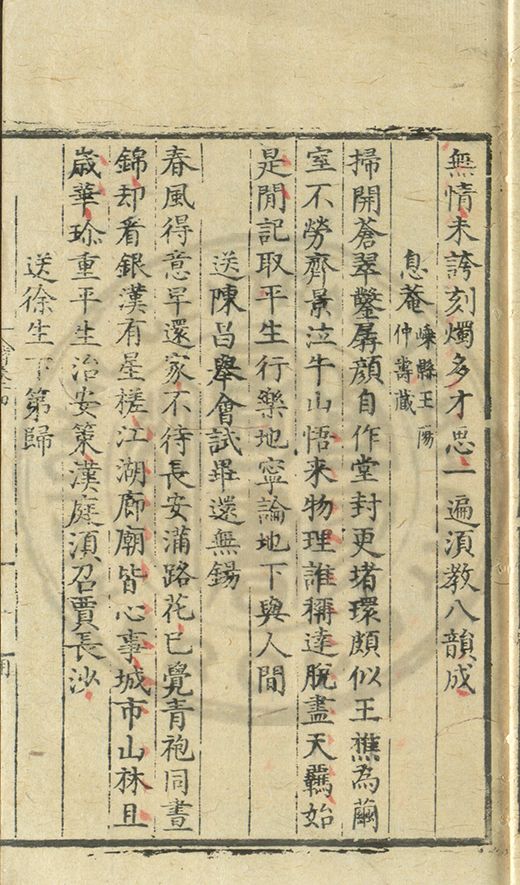 無情未誇刻燭多才思一遍須教八韻成
息菴嵊縣王陽仲壽藏
掃開蒼翠鑿孱顔自作堂封更堵環頗似王樵為繭
室不勞齊景泣牛山悟来物理誰稱達脫盡天羈始
是閒記取平生行樂地寧論地下與人間
送陳吕舉會試畢還無錫
春風得意早還家不待長安蒲路花已覺青袍同晝
錦却看銀漢有星槎江湖廊廟皆心事城市山林且
歲華珎重平生治安策漢庭湏召賈長沙
送徐生下第歸